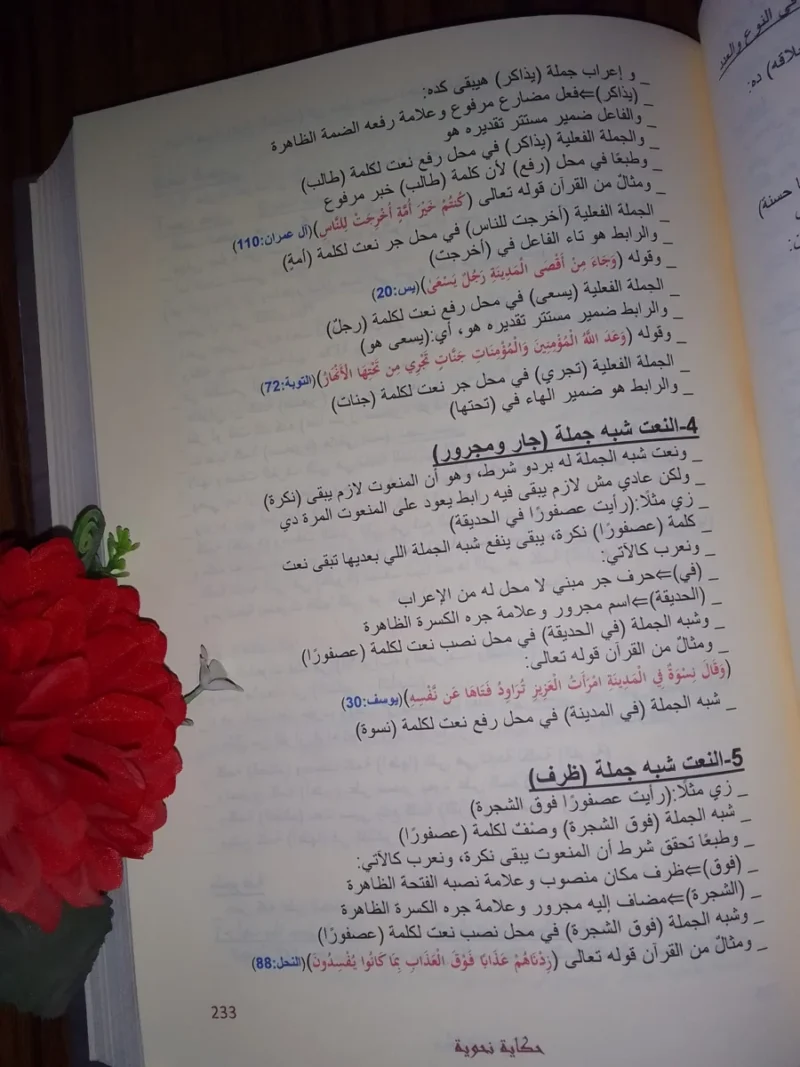 في النوع والعدد
لاقه) ده:
ا حسنة)
_ و إعراب جملة (يذاكر) هيبقى كده:
_ (يذاكر)⇐فعل مضارع مرفوع وعلامة رفعه الضمة الظاهرة
_ والفاعل ضمير مستتر تقديره هو
_ والجملة الفعلية (يذاكر) في محل رفع نعت لكلمة (طالب)
_ وطبعًا في محل (رفع) لأن كلمة (طالب) خبر مرفوع
_ ومثالٌ من القرآن قوله تعالى (كُنتُمْ خَيْرَ أُمَّةٍ أُخْرِجَتْ لِلنَّاسِ)(آل عمران:110)
_ الجملة الفعلية (أخرجت للناس) في محل جر نعت لكلمة (أمةٍ)
_ والرابط هو تاء الفاعل في (أخرجت)
_ وقوله (وَجَاءَ مِنْ أَقْصَى الْمَدِينَةِ رَجُلٌ يَسْعَىٰ)(يس:20)
_ الجملة الفعلية (يسعى) في محل رفع نعت لكلمة (رجلٌ)
_ والرابط ضمير مستتر تقديره هو، أي:(يسعى هو)
_ وقوله (وَعَدَ اللَّهُ الْمُؤْمِنِينَ وَالْمُؤْمِنَاتِ جَنَّاتٍ تَجْرِي مِن تَحْتِهَا الْأَنْهَارُ)(التوبة:72)
_ الجملة الفعلية (تجري) في محل جر نعت لكلمة (جنات)
_ والرابط هو ضمير الهاء في (تحتها)
4-النعت شبه جملة (جار ومجرور)
_ ونعت شبه الجملة له بردو شرط، وهو أن المنعوت لازم يبقى (نكرة)
_ ولكن عادي مش لازم يبقى فيه رابط يعود على المنعوت المرة دي
_ زي مثلًا:(رأيت عصفورًا في الحديقة)
_ كلمة (عصفورًا) نكرة، يبقى ينفع شبه الجملة اللي بعديها تبقى نعت
_ ونعرب كالآتي:
_ (في)⇐حرف جر مبني لا محل له من الإعراب
_ (الحديقة)⇐اسم مجرور وعلامة جره الكسرة الظاهرة
_ وشبه الجملة (في الحديقة) في محل نصب نعت لكلمة (عصفورًا)
_ ومثالٌ من القرآن قوله تعالى:
(وَقَالَ نِسْوَةٌ فِي الْمَدِينَةِ امْرَأَتُ الْعَزِيزِ تُرَاوِدُ فَتَاهَا عَن نَّفْسِهِ)(يوسف:30)
_ شبه الجملة (في المدينة) في محل رفع نعت لكلمة (نسوة)
5-النعت شبه جملة (ظرف)
_ زي مثلًا:(رأيت عصفورًا فوق الشجرة)
_ شبه الجملة (فوق الشجرة) وصْفٌ لكلمة (عصفورًا)
_ وطبعًا تحقق شرط أن المنعوت يبقى نكرة، ونعرب كالآتي:
_ (فوق)⇐ظرف مكان منصوب وعلامة نصبه الفتحة الظاهرة
_ (الشجرة)⇐مضاف إليه مجرور وعلامة جره الكسرة الظاهرة
_ وشبه الجملة (فوق الشجرة) في محل نصب نعت لكلمة (عصفورًا)
_ ومثالٌ من القرآن قوله تعالى (زِدْنَاهُمْ عَذَابًا فَوْقَ الْعَذَابِ بِمَا كَانُوا يُفْسِدُونَ)(النحل:88)
233
حكاية نحوية